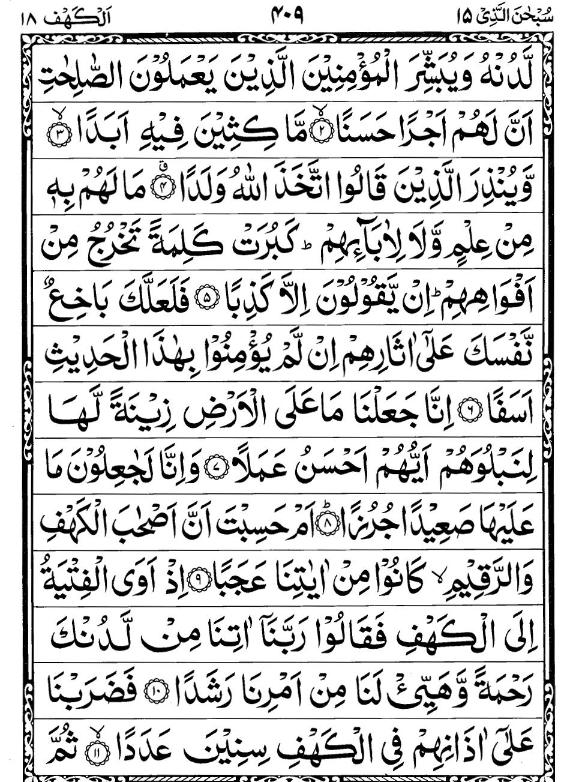 سُبْحٰنَ الَّذِیْ ١٥ ۴۰۹ اَلْكَهْف ١٨
لَّدُنْهُ وَيُبَشِّرَ الْمُؤْمِنِيْنَ الَّذِيْنَ يَعْمَلُوْنَ الصّٰلِحٰتِ
اَنَّ لَهُمْ اَجْرًا حَسَنًا ۙ‏﴿۲﴾ مَّا كِثِيْنَ فِيْهِ اَبَدًا ۙ‏﴿۳﴾
وَّيُنْذِرَ الَّذِيْنَ قَالُوا اتَّخَذَ اللّٰهُ وَلَدًا ۗ‏﴿۴﴾ مَا لَهُمْ بِهٖ
مِنْ عِلْمٍ وَّلَا لِاٰبَآئِهِمْ ؕ كَبُرَتْ كَلِمَةً تَخْرُجُ مِنْ
اَفْوَاهِهِمْ ؕ اِنْ يَّقُوْلُوْنَ اِلَّا كَذِبًا ﴿۵﴾ فَلَعَلَّكَ بَاخِعٌ
نَّفْسَكَ عَلٰٓى اٰثَارِهِمْ اِنْ لَّمْ يُؤْمِنُوْا بِهٰذَا الْحَدِيْثِ
اَسَفًا ﴿۶﴾ اِنَّا جَعَلْنَا مَا عَلَى الْاَرْضِ زِيْنَةً لَّهَا
لِنَبْلُوَهُمْ اَيُّهُمْ اَحْسَنُ عَمَلًا ﴿۷﴾ وَاِنَّا لَجٰعِلُوْنَ مَا
عَلَيْهَا صَعِيْدًا جُرُزًا ؕ‏﴿۸﴾ اَمْ حَسِبْتَ اَنَّ اَصْحٰبَ الْكَهْفِ
وَالرَّقِيْمِ ۙ كَانُوْا مِنْ اٰيٰتِنَا عَجَبًا ﴿۹﴾ اِذْ اَوَى الْفِتْيَةُ
اِلَى الْكَهْفِ فَقَالُوْا رَبَّنَآ اٰتِنَا مِنْ لَّدُنْكَ
رَحْمَةً وَّهَيِّئْ لَنَا مِنْ اَمْرِنَا رَشَدًا ﴿۱۰﴾ فَضَرَبْنَا
عَلٰٓى اٰذَانِهِمْ فِى الْكَهْفِ سِنِيْنَ عَدَدًا ۙ‏﴿۱۱﴾ ثُمَّ